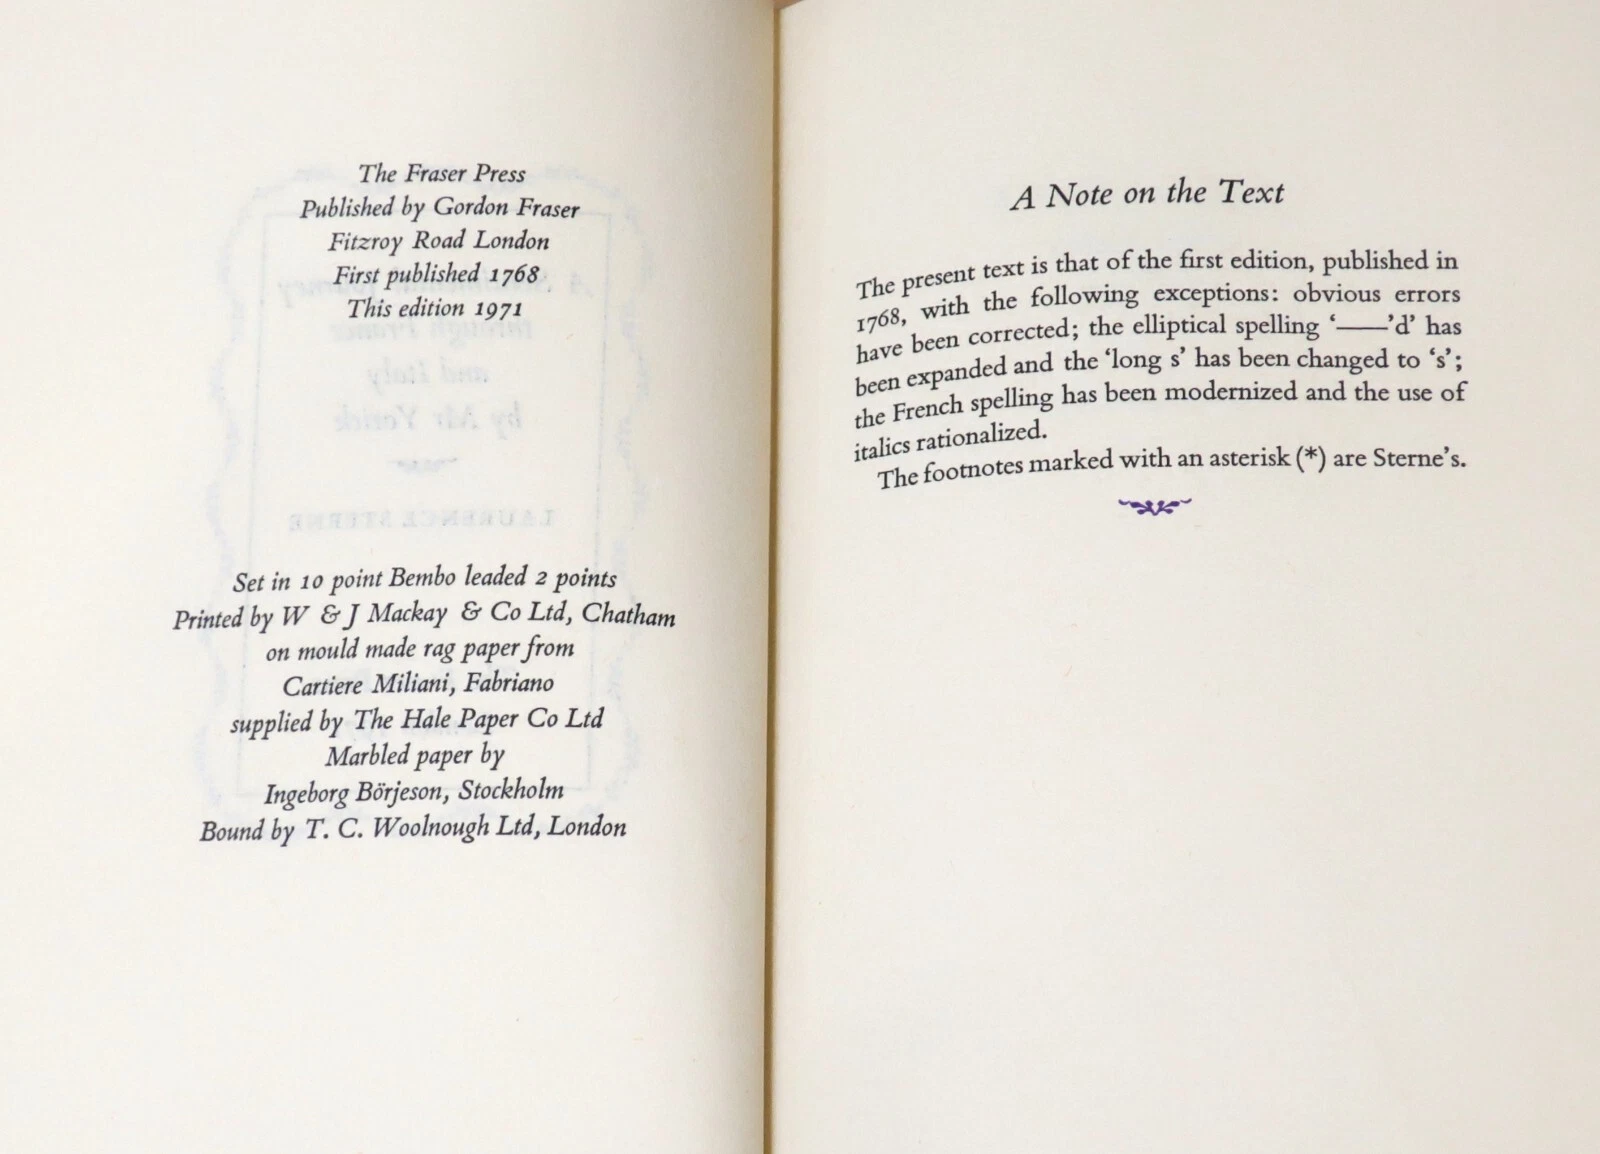 The Fraser Press
Published by Gordon Fraser
Fitzroy Road London
First published 1768
This edition 1971
Set in 10 point Bembo leaded 2 points
Printed by W & J Mackay & Co Ltd, Chatham
on mould made rag paper from
Cartiere Miliani, Fabriano
supplied by The Hale Paper Co Ltd
Marbled paper by
Ingeborg Börjeson, Stockholm
Bound by T. C. Woolnough Ltd, London
A Note on the Text
The present text is that of the first edition, published in
1768, with the following exceptions: obvious errors
have been corrected; the elliptical spelling ‘——’d’ has
been expanded and the ‘long s’ has been changed to ‘s’;
the French spelling has been modernized and the use of
italics rationalized.
The footnotes marked with an asterisk (*) are Sterne’s.